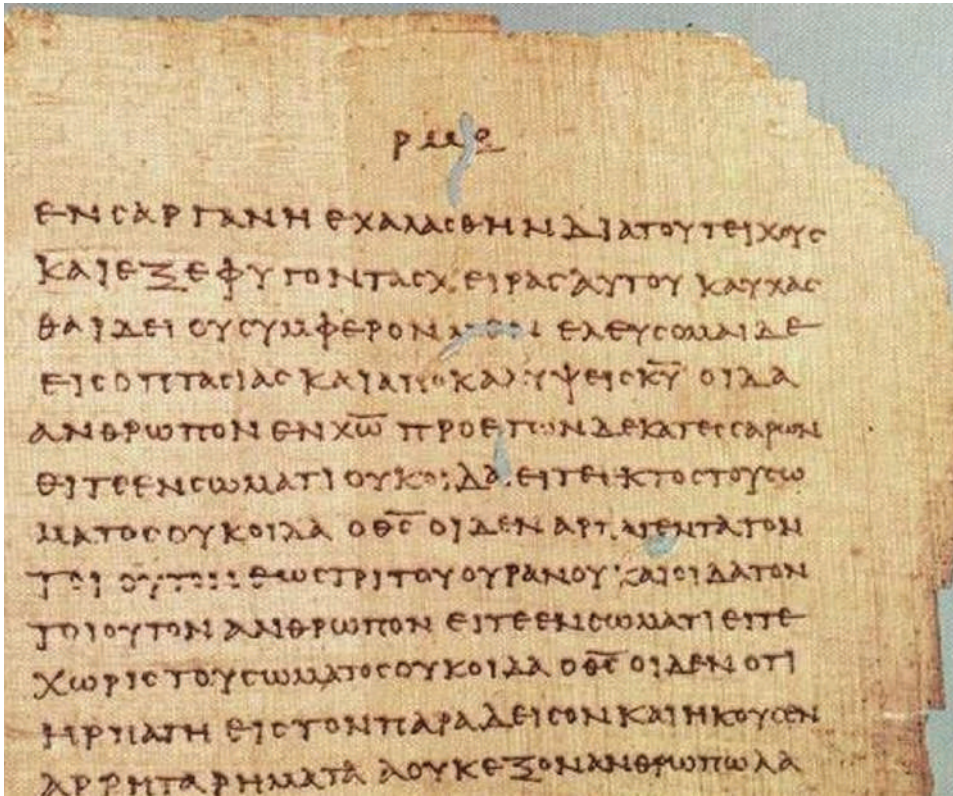 ρμε
ΕΝϹΑΡΓΑΝΗ ΕΧΑΛΑϹΘΗΝ ΔΙΑΤΟΥΤΕΙΧΟΥϹ
ΚΑΙΕΞΕΦΥΓΟΝΤΑϹΧΕΙΡΑϹΑΥΤΟΥ ΚΑΥΧΑϹ
ΘΑΙΔΕΙ ΟΥϹΥΜΦΕΡΟΝ ΜΕΝ ΕΛΕΥϹΟΜΑΙΔΕ
ΕΙϹΟΠΤΑϹΙΑϹ ΚΑΙΑΠΟΚΑΛΥΨΕΙϹΚ̅Υ̅ ΟΙΔΑ
ΑΝΘΡΩΠΟΝ ΕΝΧ̅Ω̅ ΠΡΟΕΤΩΝΔΕΚΑΤΕϹϹΑΡΩΝ
ΕΙΤΕΕΝϹΩΜΑΤΙ ΟΥΚΟΙΔΑ ΕΙΤΕΕΚΤΟϹΤΟΥϹΩ
ΜΑΤΟϹΟΥΚΟΙΔΑ ΟΘ̅Ϲ̅ ΟΙΔΕΝ ΑΡΠΑΓΕΝΤΑΤΟΝ
ΤΟΙΟΥΤΟΝ ΕΩϹΤΡΙΤΟΥΟΥΡΑΝΟΥ ΚΑΙΟΙΔΑΤΟΝ
ΤΟΙΟΥΤΟΝ ΑΝΘΡΩΠΟΝ ΕΙΤΕΕΝϹΩΜΑΤΙ ΕΙΤΕ
ΧΩΡΙϹΤΟΥϹΩΜΑΤΟϹΟΥΚΟΙΔΑ ΟΘ̅Ϲ̅ ΟΙΔΕΝ ΟΤΙ
ΗΡΠΑΓΗ ΕΙϹΤΟΝΠΑΡΑΔΕΙϹΟΝΚΑΙΗΚΟΥϹΕΝ
ΑΡΡΗΤΑΡΗΜΑΤΑ ΑΟΥΚΕΞΟΝΑΝΘΡΩΠΩΛΑ